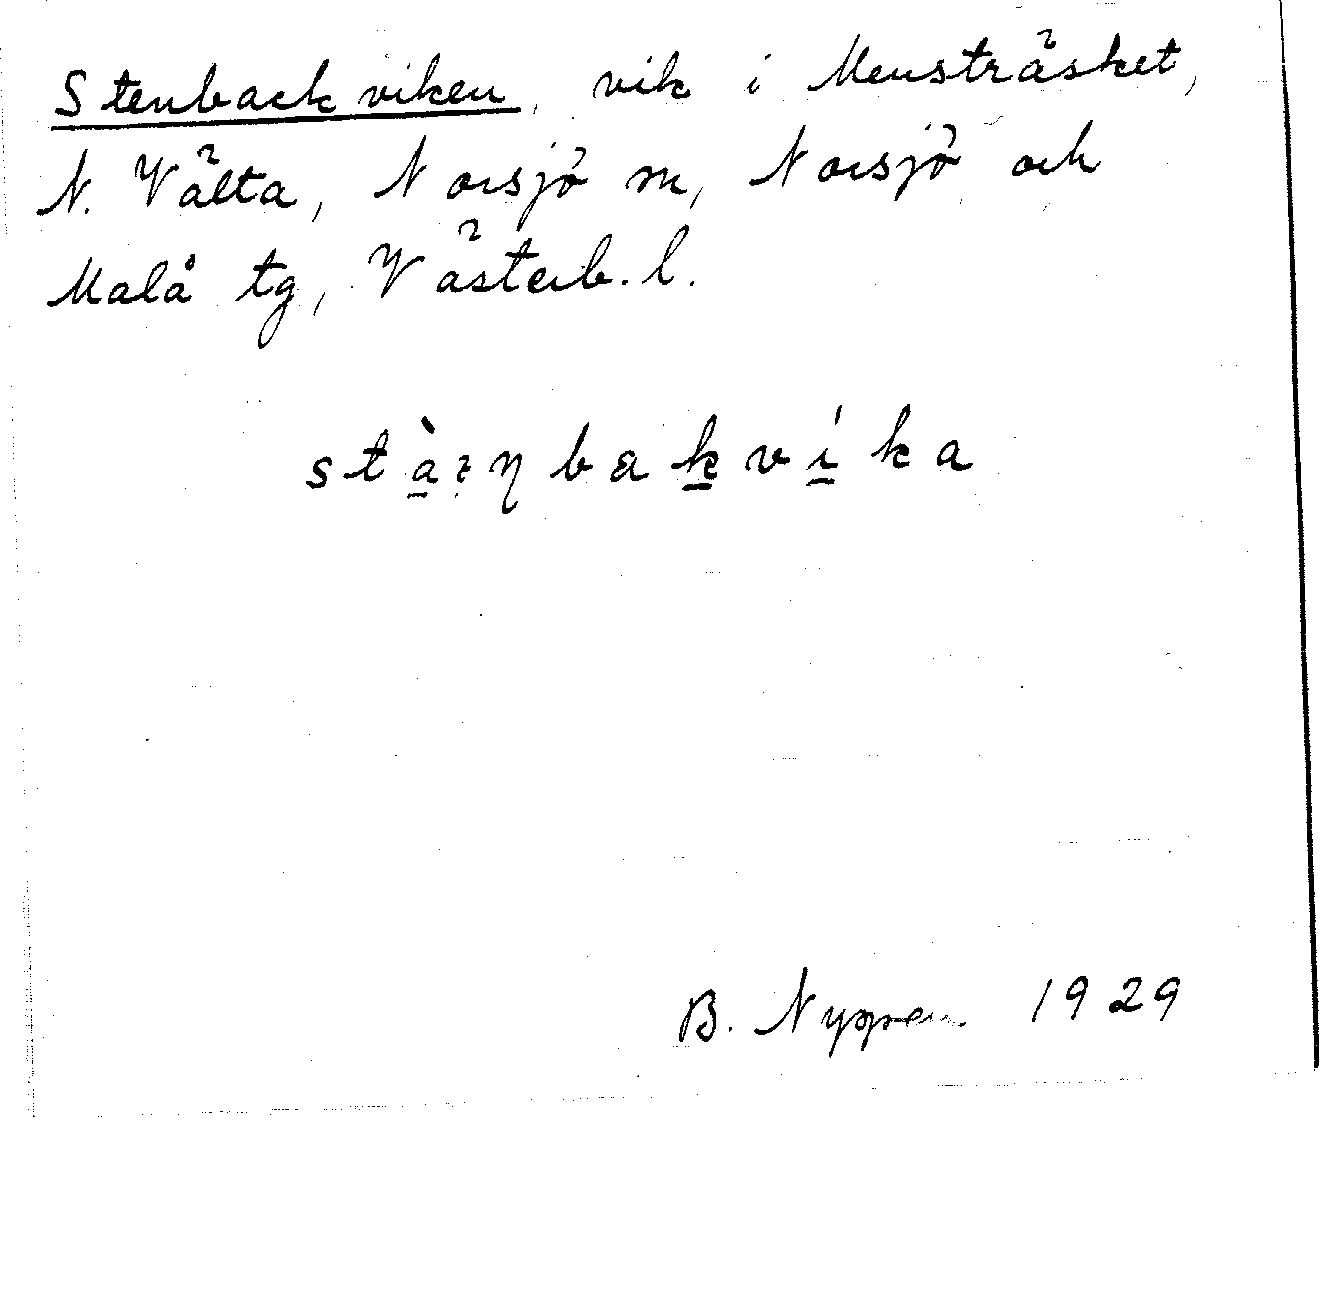 Stenbackviken, vik i Mensträsket,
N. Välta, Norsjö sn, Norsjö och
Malå tg, Västerb. l.
bakvíka
B. Nygren 1929